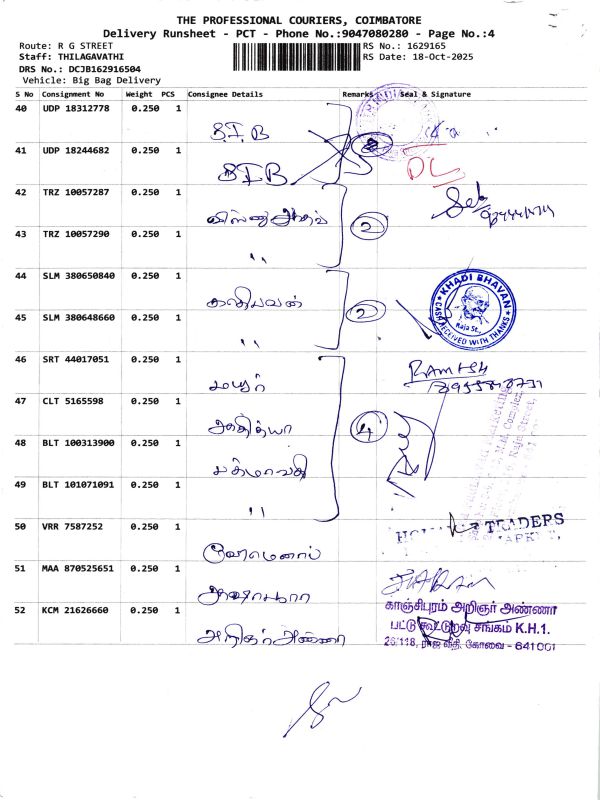 THE PROFESSIONAL COURIERS, COIMBATORE
Delivery Runsheet - PCT - Phone No.:9047080280 - Page No.:4
Route: R G STREET
RS No.: 1629165
Staff: THILAGAVATHI
RS Date: 18-Oct-2025
DRS No.: DCJB162916504
Vehicle: Big Bag Delivery
S No Consignment No Weight PCS Consignee Details Remarks Seal & Signature
40 UDP 18312778 0.250 1
S.I.B
41 UDP 18244682 0.250 1
SIB
DC
42 TRZ 10057287 0.250 1
2
43 TRZ 10057290 0.250 1
"
44 SLM 380650840 0.250 1
கதிரவன்
2
KHADI BHAVAN
Raja St.,
CASH RECEIVED WITH THANKS
45 SLM 380648660 0.250 1
"
46 SRT 44017051 0.250 1
மயூர்
RAMESH
47 CLT 5165598 0.250 1
ஆதித்யா
4
48 BLT 100313900 0.250 1
பத்மாவதி
49 BLT 101071091 0.250 1
"
50 VRR 7587252 0.250 1
TRADERS
51 MAA 870525651 0.250 1
52 KCM 21626660 0.250 1
அறிஞர் அண்ணா
காஞ்சிபுரம் அறிஞர் அண்ணா
பட்டு கூட்டுறவு சங்கம் K.H.1.
26/118, ராஜ வீதி, கோவை - 641001